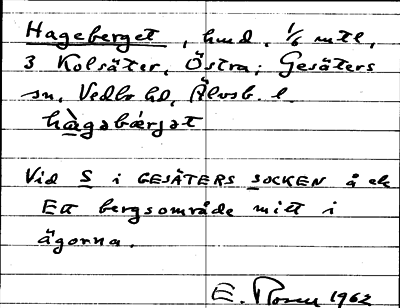 Hageberget, hmd. 1/6 mtl,
3 Kolsäter, Östra; Gesäters
sn, Vedbo hd, Älvsb. l.
hàgabǽrjət
Vid S i GESÄTERS SOCKEN å ek
Ett bergsområde mitt i
ägorna.
E. Rosen 1962